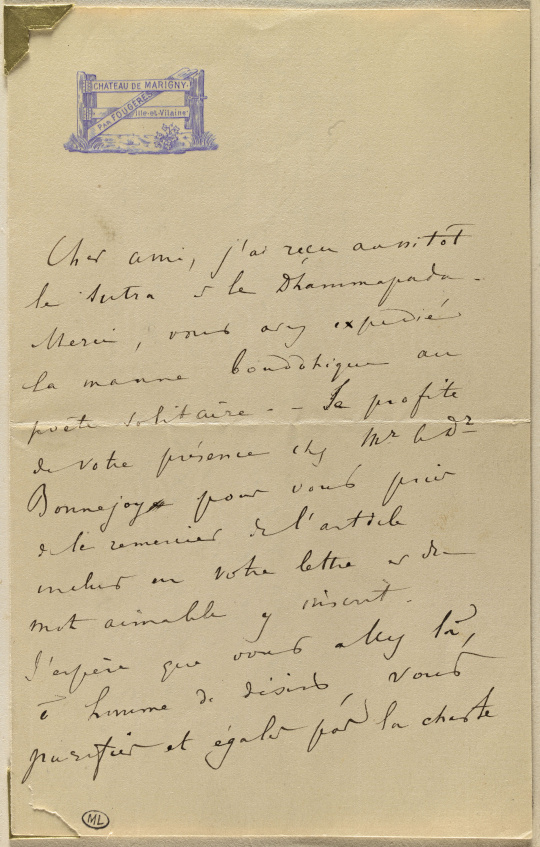 CHATEAU DE MARIGNY
PAR FOUGÈRES
Ille-et-Vilaine
Cher ami, j'ai reçu aussitôt
le Sutra et le Dhammapada -
Merci, vous avez expédié
la manne bouddhique au
poète solitaire. - Je profite
de votre présence chez Mr le Dr
Bonnejoy pour vous prier
de le remercier de l'article
inclus en votre lettre et du
mot aimable y inscrit.
J'espère que vous allez là,
ô homme de désirs, vous
purifier et égaler par la chaste
ML